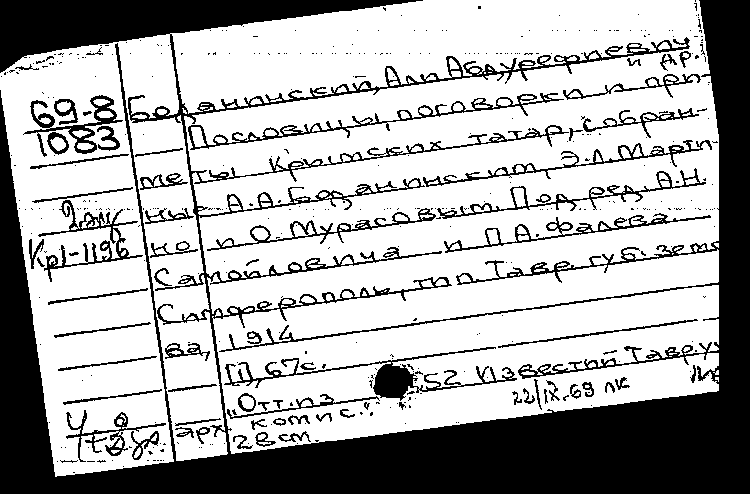 69-8 Боданинский, Али Абдурефиевич
и др.
1083 Пословицы, поговорки и при-
меты Крымских татар, собран-
2 экз
ные А.А. Боданинским, Э.Л. Марти-
Кр1-1196 но и О. Мурасовым. Под ред. А.Н.
Самойловича и П.А. Фалева.
Симферополь, тип. Тавр. губ. земс
ва, 1914
[1], 67с.
"Отт. из 52 Известий Тавр. уч
арх комис."
28 см.
22/IX-69 лк